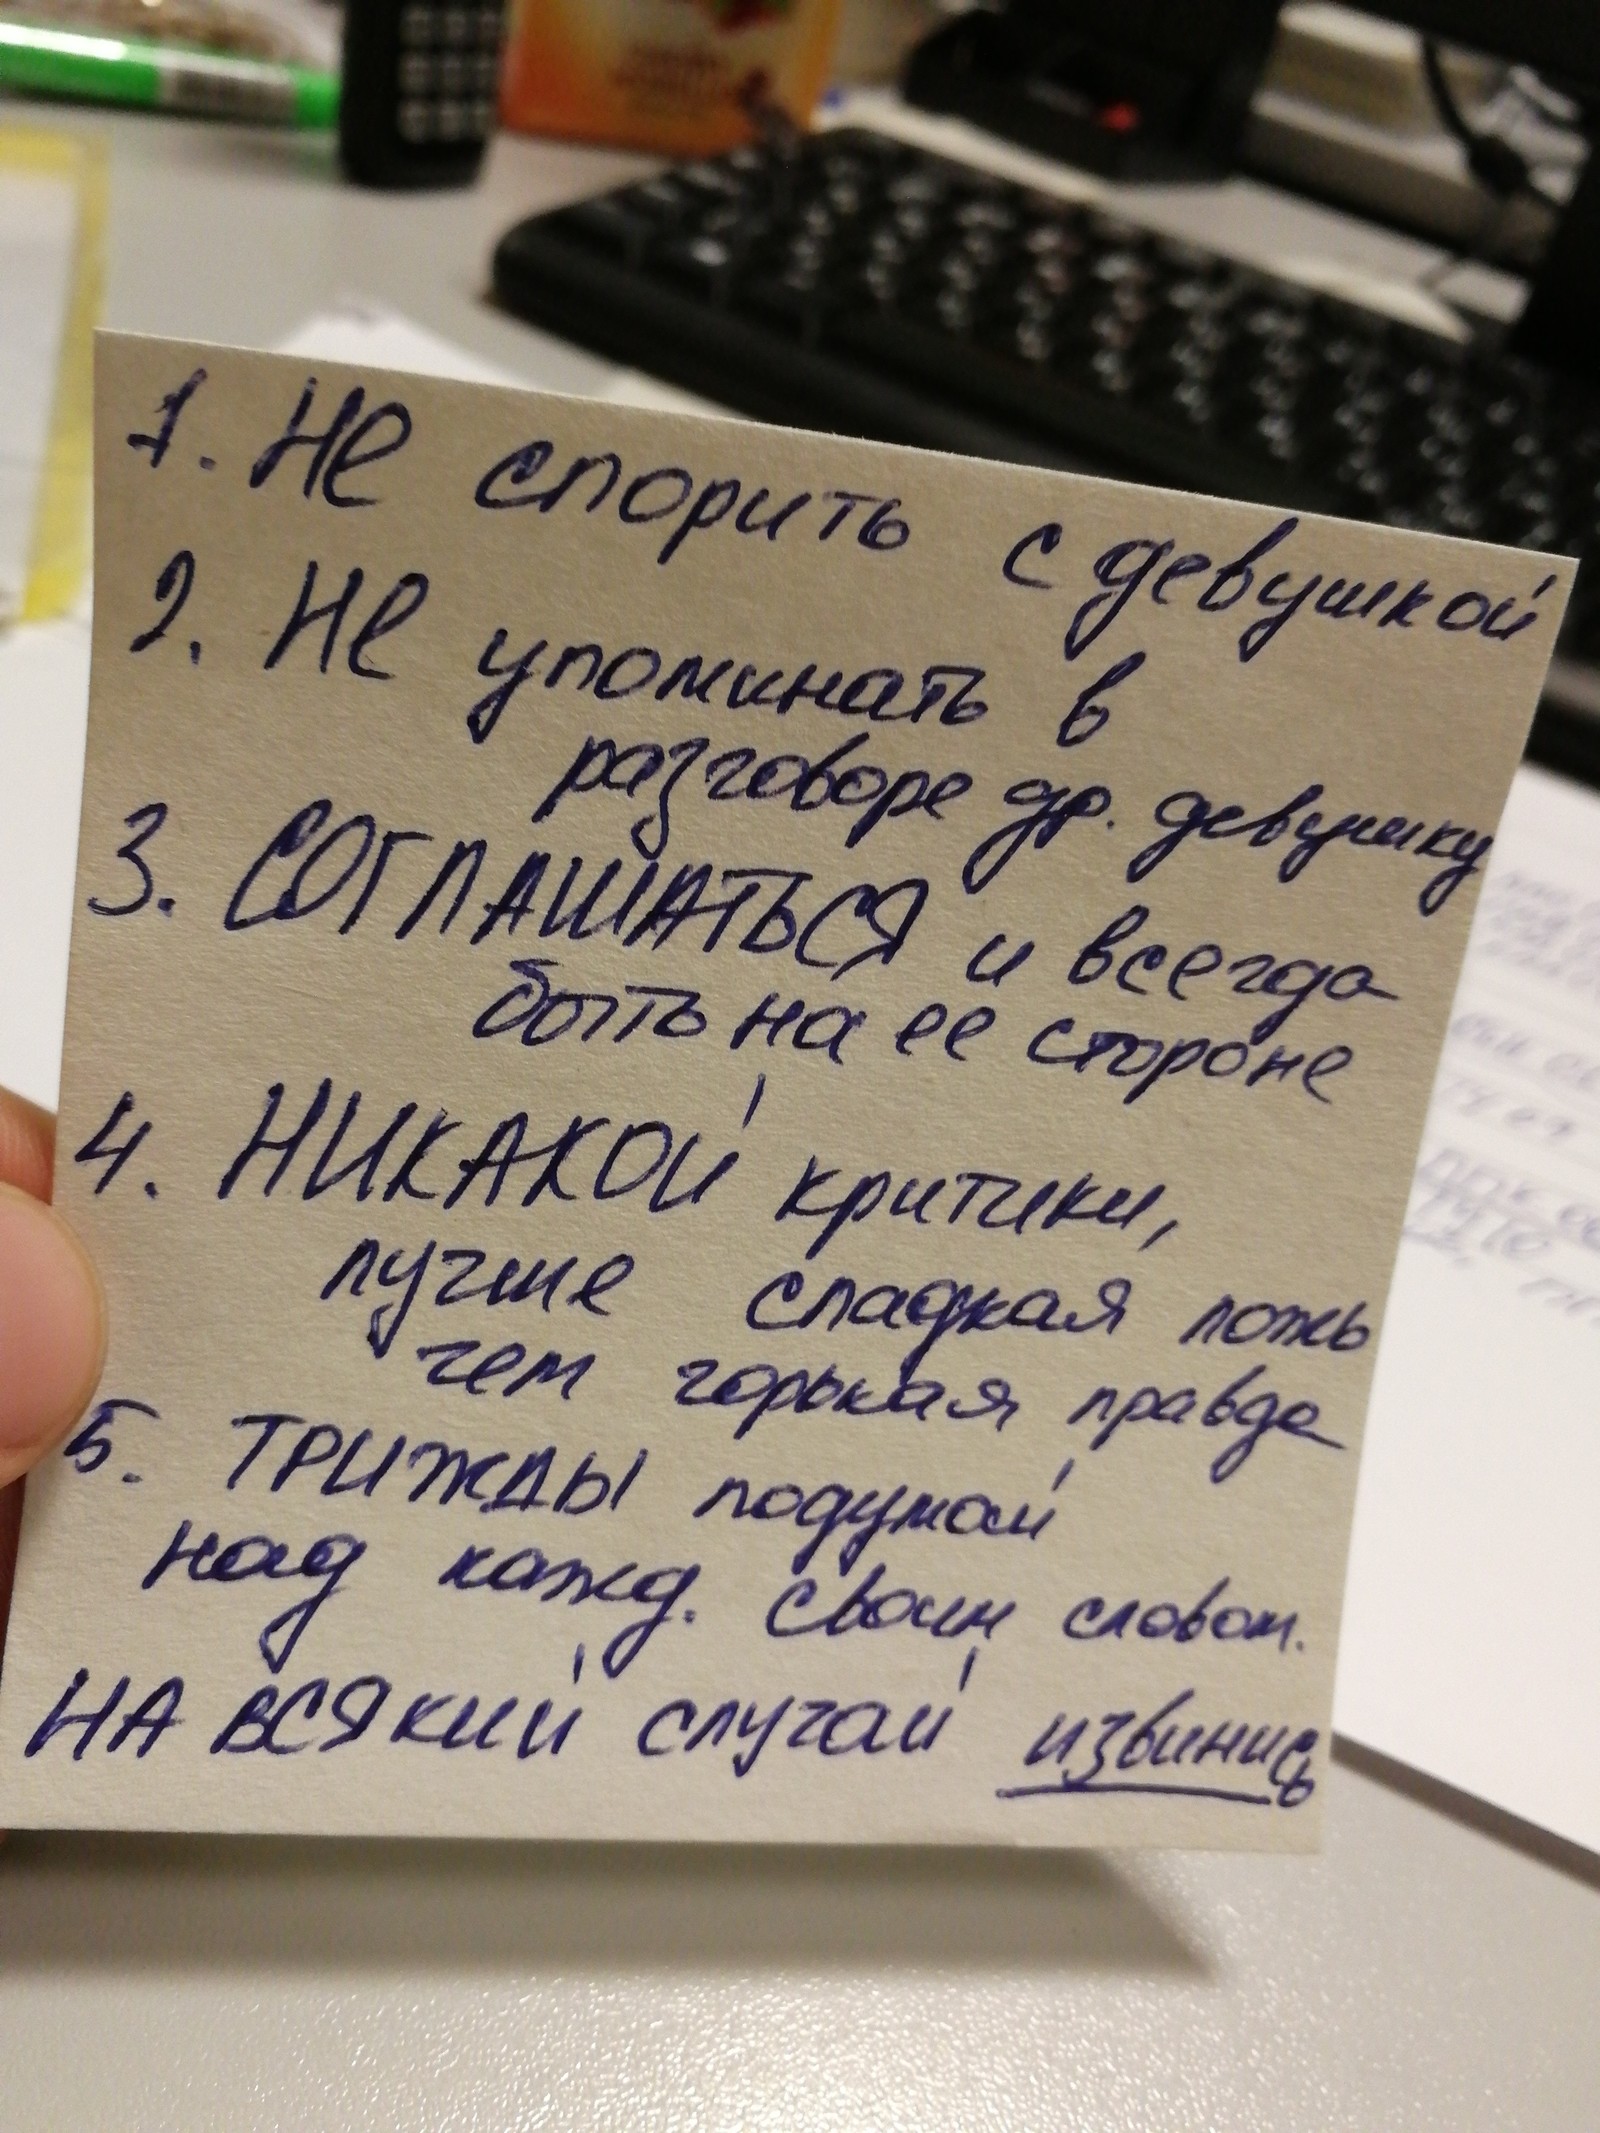 1. Не спорить с девушкой
2. Не упоминать в
разговоре др. девушку
3. СОГЛАШАТЬСЯ и всегда
быть на ее стороне
4. НИКАКОЙ критики,
лучше сладкая ложь
чем горькая правда
5. ТРИЖДЫ подумай
над кажд. своим словом.
НА ВСЯКИЙ случай извинись